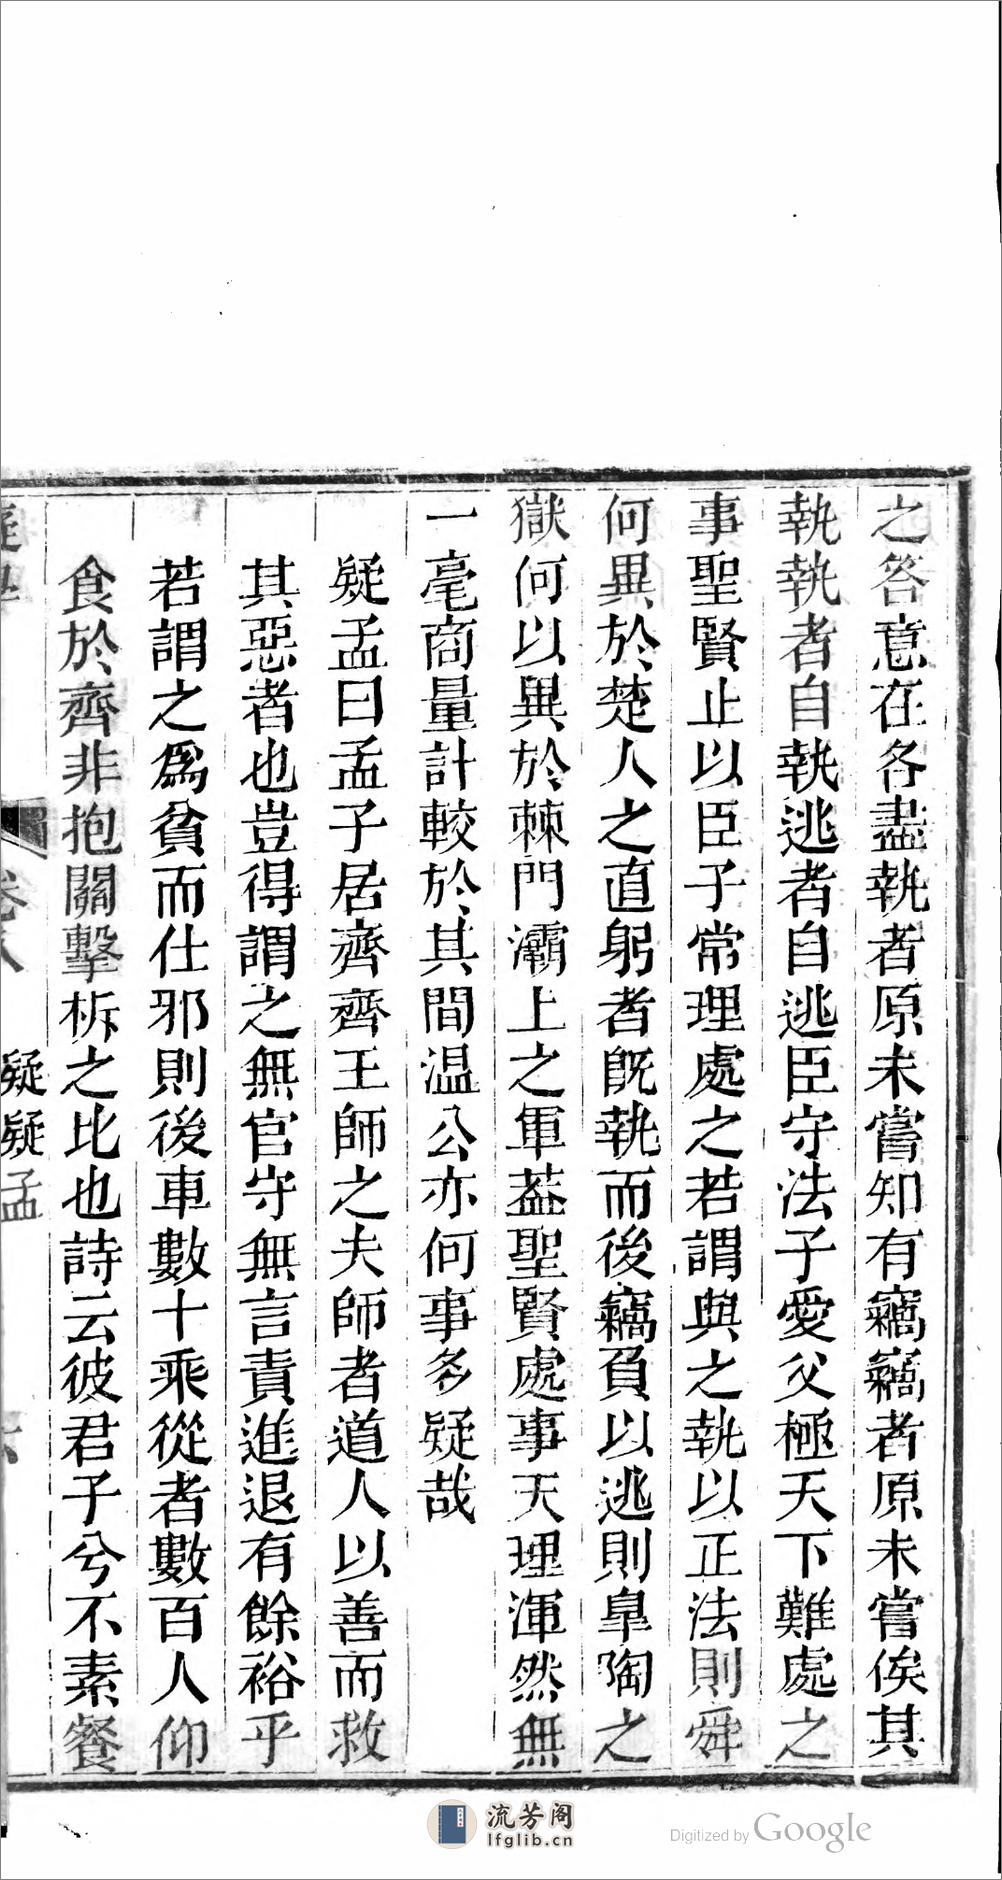 之答意在各盡執者原未嘗知有竊竊者原未嘗俟其
執執者自執逃者自逃臣守法子愛父極天下難處之
事聖賢止以臣子常理處之若謂與之執以正法則舜
何異於楚人之直躬者旣執而後竊負以逃則臯陶之
獄何以異於棘門灞上之軍葢聖賢處事天理渾然無
一毫商量計較於其間温公亦何事多疑哉
疑孟曰孟子居齊齊王師之夫師者道人以善而救
其惡者也豈得謂之無官守無言責進退有餘裕乎
若謂之爲貧而仕邪則後車數十乘從者數百人仰
食於齊非抱關擊柝之比也詩云彼君子兮不素餐
卷八
疑疑孟
六
流芳阁
lfglib.cn
Digitized by Google